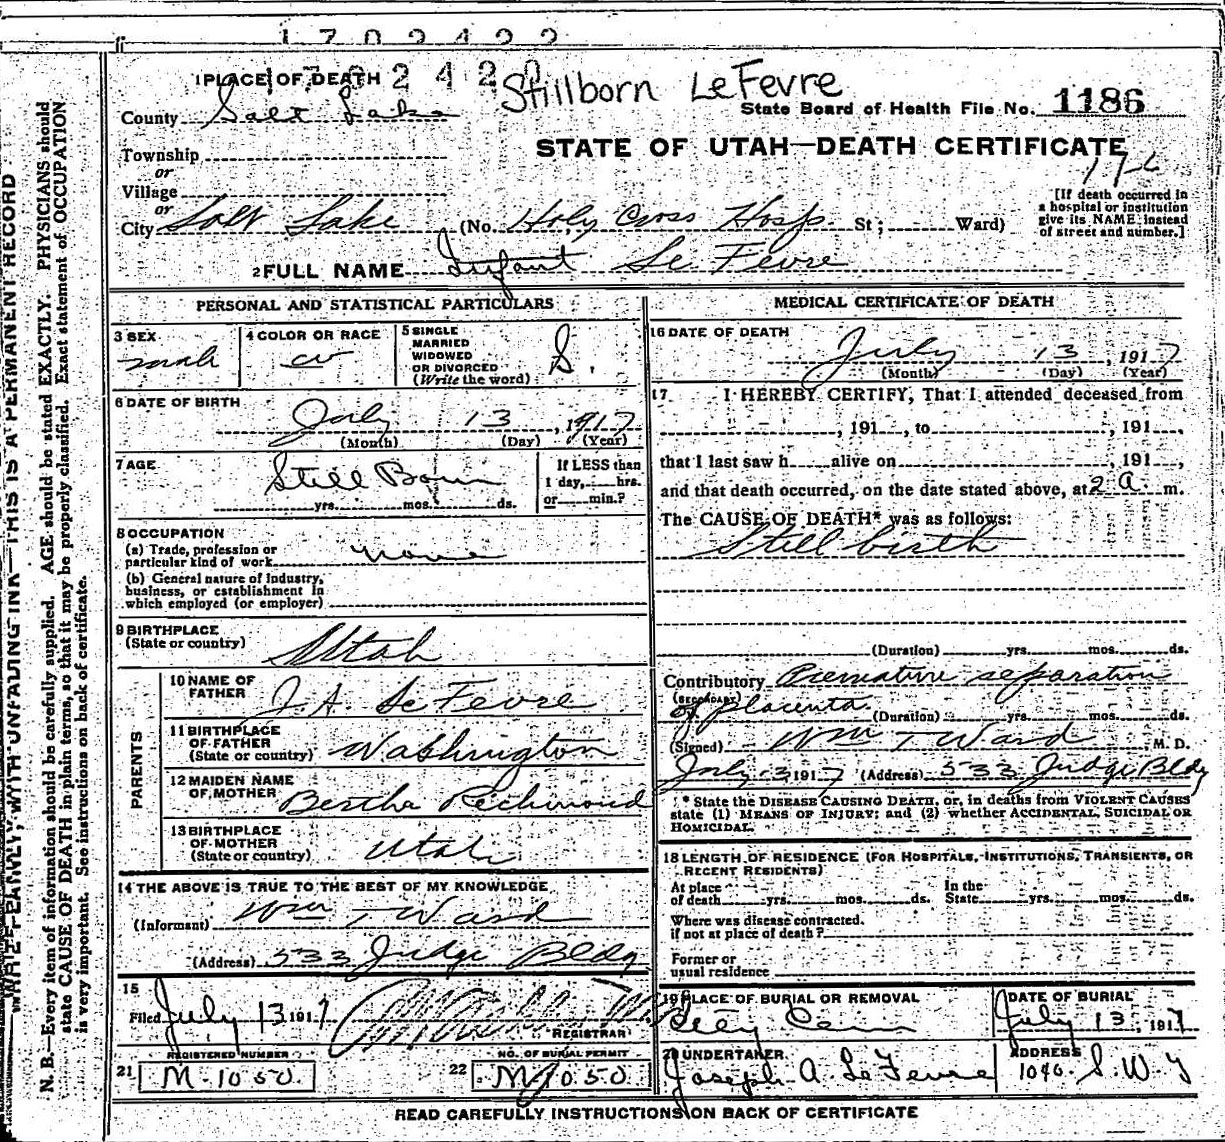 1702422
1 PLACE OF DEATH 242
Stillborn LeFevre
County Salt Lake
State Board of Health File No. 1186
STATE OF UTAH—DEATH CERTIFICATE
Township
or
Village
or
City Salt Lake (No. Holy Cross Hosp St; Ward)
[If death occurred in
a hospital or institution
give its NAME instead
of street and number.]
2 FULL NAME Infant Le Fevre
PERSONAL AND STATISTICAL PARTICULARS
3 SEX
male
4 COLOR OR RACE
5 SINGLE
MARRIED
WIDOWED
OR DIVORCED
(Write the word)
S.
6 DATE OF BIRTH
July 13, 1917
(Month) (Day) (Year)
7 AGE
Still Born
yrs. mos. ds.
If LESS than
1 day, hrs.
or min.?
8 OCCUPATION
(a) Trade, profession or
particular kind of work none
(b) General nature of industry,
business, or establishment in
which employed (or employer)
9 BIRTHPLACE
(State or country) Utah
PARENTS
10 NAME OF
FATHER J. A. Le Fevre
11 BIRTHPLACE
OF FATHER
(State or country) Washington
12 MAIDEN NAME
OF MOTHER Bertha Richmond
13 BIRTHPLACE
OF MOTHER
(State or country) Utah
14 THE ABOVE IS TRUE TO THE BEST OF MY KNOWLEDGE
(Informant) Wm T Ward
(Address) 533 Judge Bldg
15
Filed July 13 1917
REGISTRAR
REGISTERED NUMBER
21 M-1050
NO. OF BURIAL PERMIT
22 M 1050
MEDICAL CERTIFICATE OF DEATH
16 DATE OF DEATH
July 13, 1917
(Month) (Day) (Year)
17 I HEREBY CERTIFY, That I attended deceased from
, 191 , to , 191 ,
that I last saw h alive on , 191 ,
and that death occurred, on the date stated above, at 2 a. m.
The CAUSE OF DEATH* was as follows:
Still birth
(Duration) yrs. mos. ds.
Contributory Premature separation
(SECONDARY) of placenta
(Duration) yrs. mos. ds.
(Signed) Wm T Ward M. D.
July 13 1917 (Address) 533 Judge Bldg
* State the DISEASE CAUSING DEATH, or, in deaths from VIOLENT CAUSES
state (1) MEANS OF INJURY; and (2) whether ACCIDENTAL, SUICIDAL OR
HOMICIDAL.
18 LENGTH OF RESIDENCE (FOR HOSPITALS, INSTITUTIONS, TRANSIENTS, OR
RECENT RESIDENTS)
At place
of death yrs. mos. ds.
In the
State yrs. mos. ds.
Where was disease contracted.
if not at place of death?
Former or
usual residence
19 PLACE OF BURIAL OR REMOVAL
City Cem
DATE OF BURIAL
July 13, 1917
20 UNDERTAKER
Joseph A. Le Fevre
ADDRESS
READ CAREFULLY INSTRUCTIONS ON BACK OF CERTIFICATE
WRITE PLAINLY, WITH UNFADING INK—THIS IS A PERMANENT RECORD
N. B.—Every item of information should be carefully supplied. AGE should be stated EXACTLY. PHYSICIANS should
state CAUSE OF DEATH in plain terms, so that it may be properly classified. Exact statement of OCCUPATION
is very important. See instructions on back of certificate.